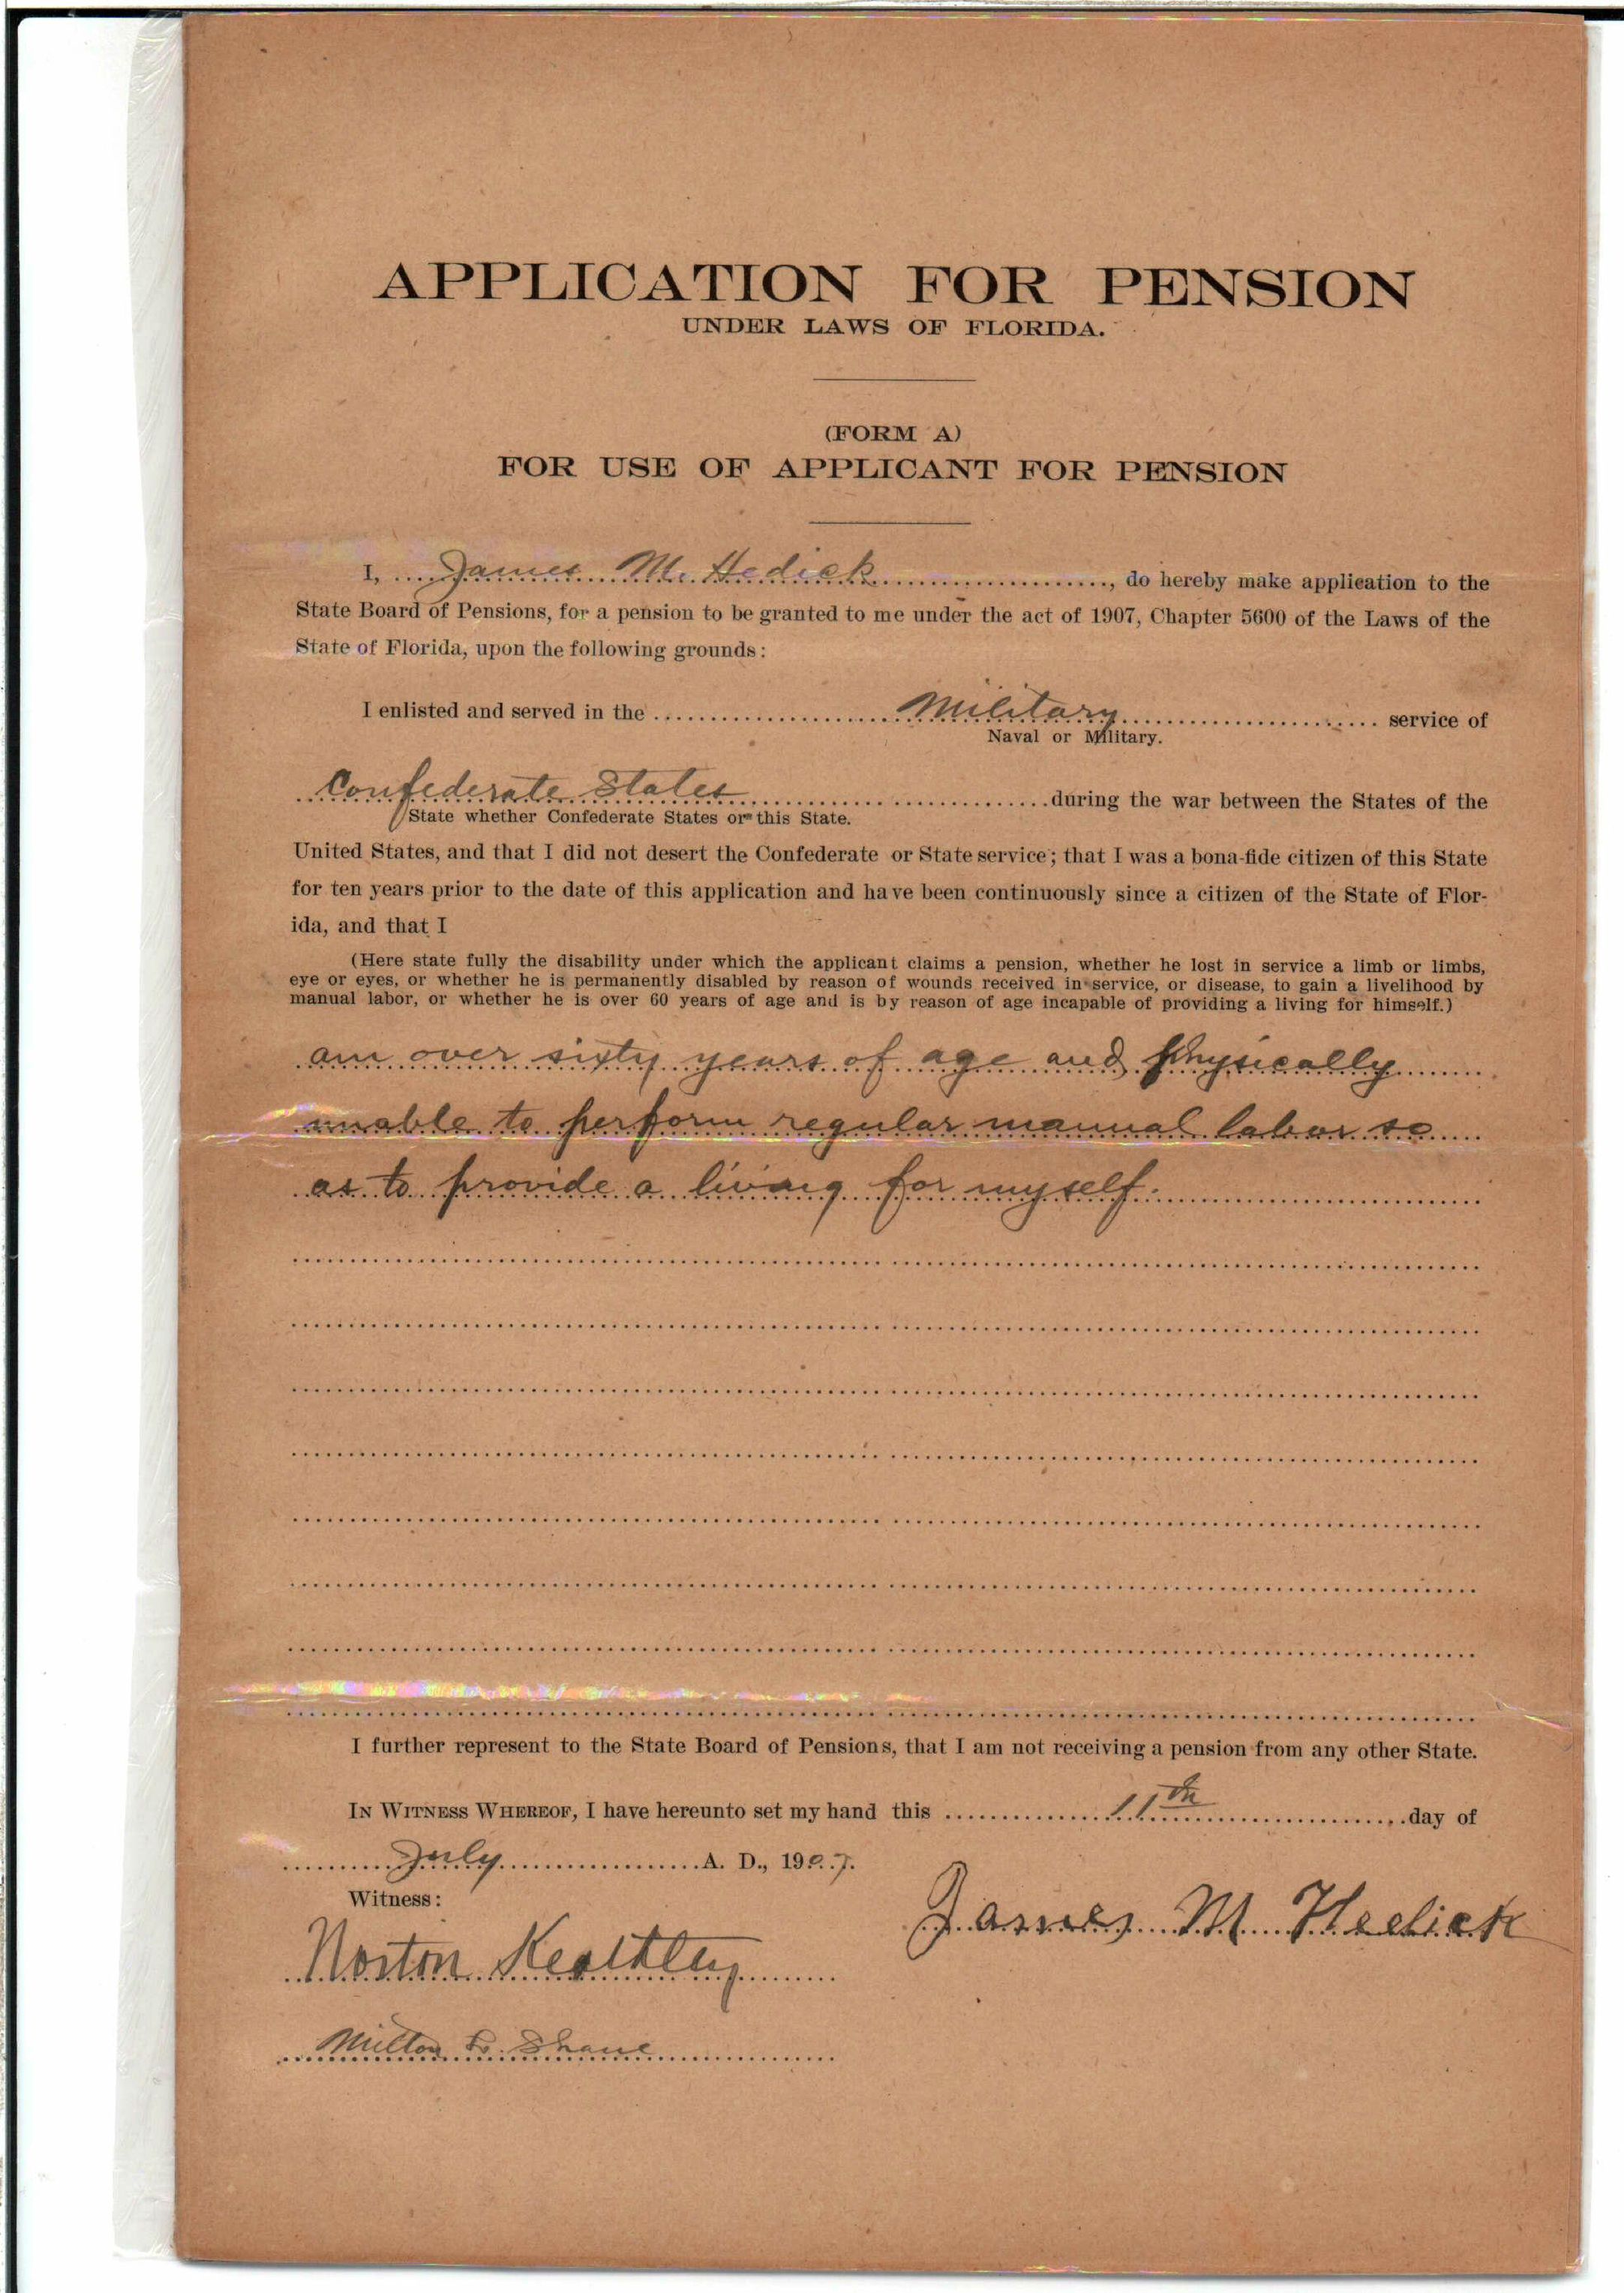 APPLICATION FOR PENSION
UNDER LAWS OF FLORIDA.
(FORM A)
FOR USE OF APPLICANT FOR PENSION
I, James M. Hedick, do hereby make application to the
State Board of Pensions, for a pension to be granted to me under the act of 1907, Chapter 5600 of the Laws of the
State of Florida, upon the following grounds:
I enlisted and served in the Military service of
Naval or Military.
Confederate States during the war between the States of the
State whether Confederate States or this State.
United States, and that I did not desert the Confederate or State service; that I was a bona-fide citizen of this State
for ten years prior to the date of this application and have been continuously since a citizen of the State of Flor-
ida, and that I
(Here state fully the disability under which the applicant claims a pension, whether he lost in service a limb or limbs,
eye or eyes, or whether he is permanently disabled by reason of wounds received in service, or disease, to gain a livelihood by
manual labor, or whether he is over 60 years of age and is by reason of age incapable of providing a living for himself.)
am over sixty years of age and physically
unable to perform regular manual labor so
as to provide a living for myself.
I further represent to the State Board of Pensions, that I am not receiving a pension from any other State.
IN WITNESS WHEREOF, I have hereunto set my hand this 11th day of
July A. D., 1907.
Witness:
James M Hedick
Norton Keathley
Milton Shane